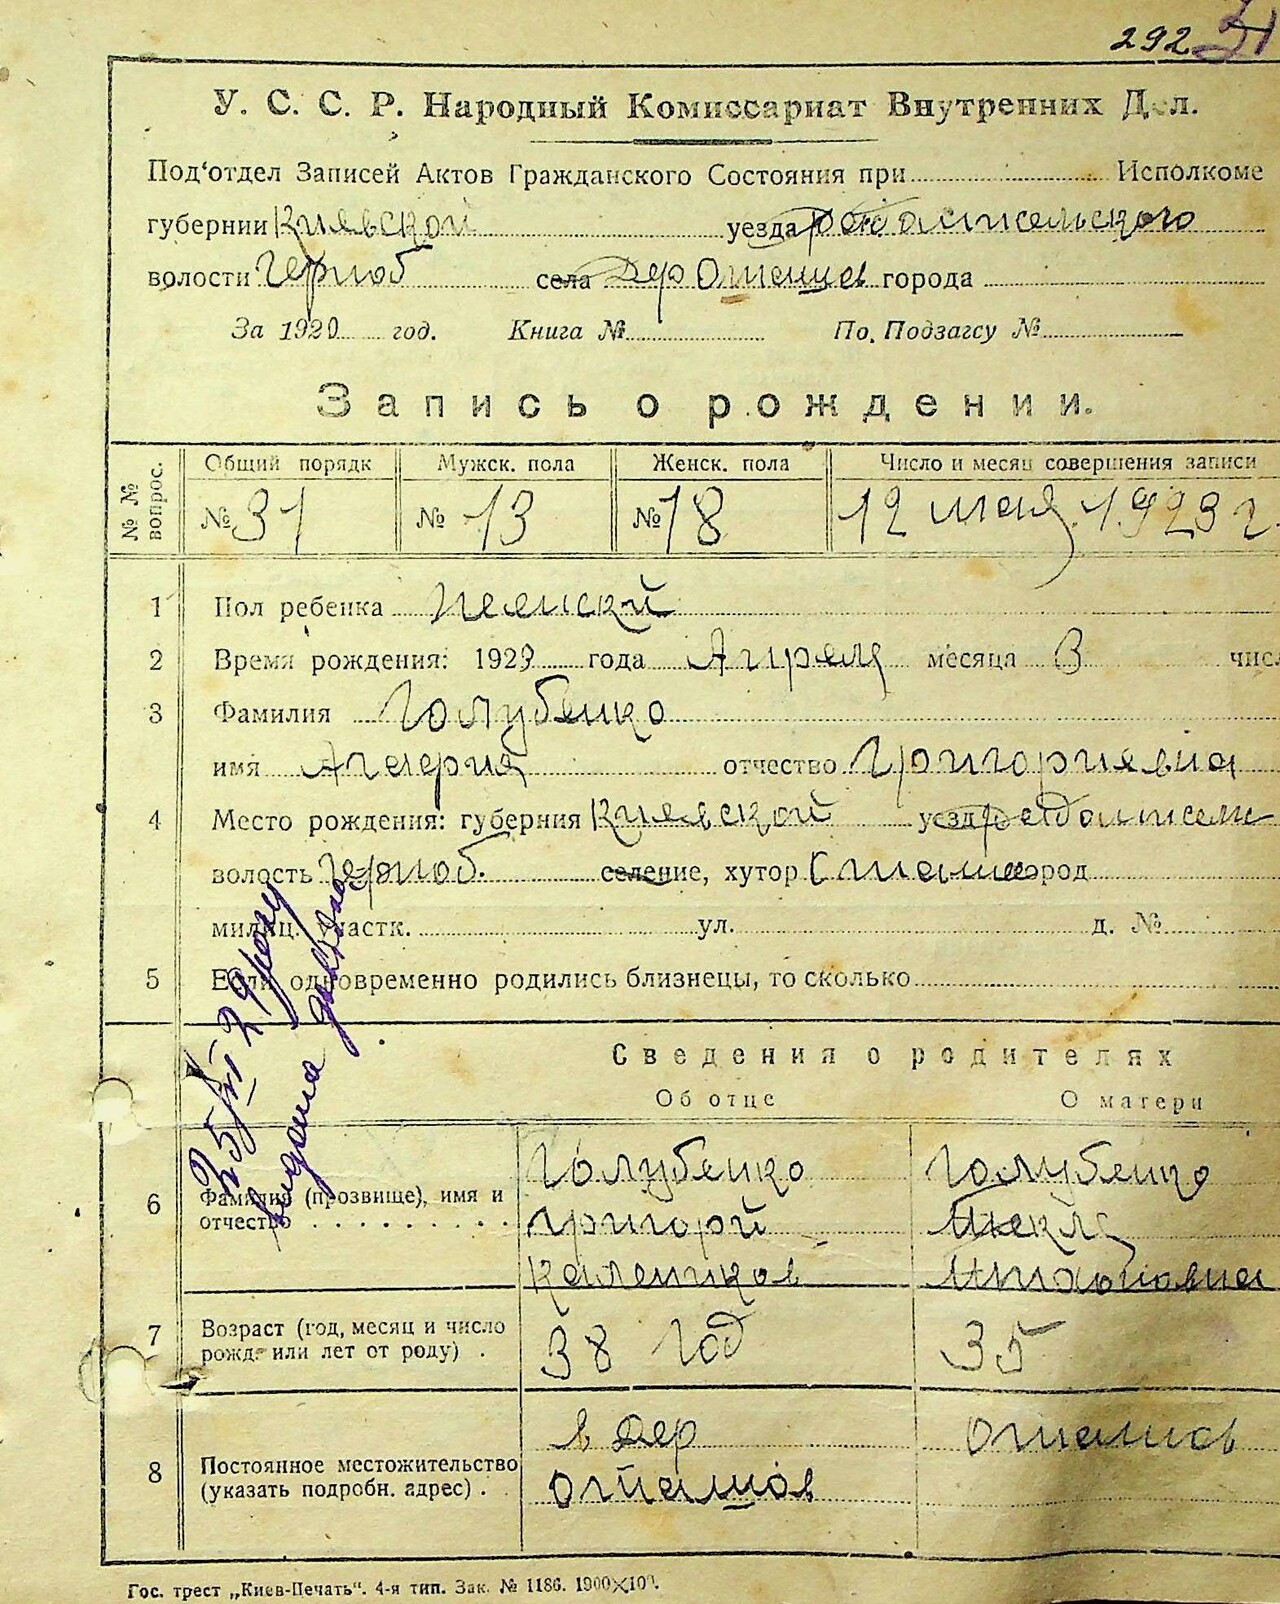 292 31
У. С. С. Р. Народный Комиссариат Внутренних Дел.
Под'отдел Записей Актов Гражданского Состояния при Исполкоме
губернии Киевской уезда
волости Черноб села Дер Оташев города
За 1923 год. Книга № По. Подзагсу №
Запись о рождении.
№ № вопрос.
Общий порядк Мужск. пола Женск. пола Число и месяц совершения записи
№ 31 № 13 № 18 12 мая 1923 г.
1 Пол ребенка Женский
2 Время рождения: 1923 года Апреля месяца 3 числ
3 Фамилия Голубенко
имя отчество Григориевна
4 Место рождения: губерния Киевской уезд
волость Черноб. селение, хутор город
милиц. участк. ул. д. №
5 Если одновременно родились близнецы, то сколько
Сведения о родителях
Об отце О матери
6 Фамилия (прозвище), имя и отчество
Голубенко Голубенко
Григорй
7 Возраст (год, месяц и число рожд. или лет от роду) .
38 год 35
8 Постоянное местожительство (указать подробн. адрес) .
в дер Оташов
Оташов
видана
Гос. трест „Киев-Печать“. 4-я тип. Зак. № 1186. 1900×100.